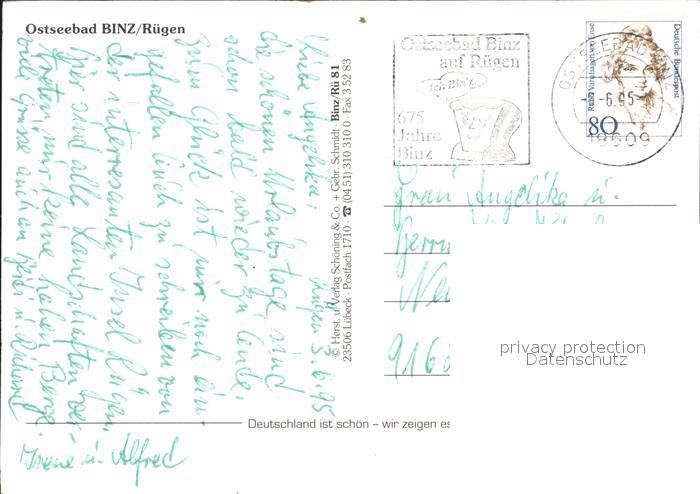 Ostseebad BINZ/Rügen
Rügen 3.6.95
Liebe Angelika.
die schönen Urlaubstage sind
schon bald wieder zu Ende,
zum Glück ist mir noch ein-
gefallen Euch zu schreiben von
der interessanten Insel Rügen,
hier sind alle Landschaften ver-
treten nur keine hohen Berge.
viele Grüsse auch an Heidi u.
Irene u. Alfred
© Herst. u. Verlag Schöning & Co. + Gebr. Schmidt Binz/Rü 81
23506 Lübeck · Postfach 1710 · ☎ (04 51) 310 310 0 · Fax 3 52 83
Ostseebad Binz
auf Rügen
Ich Bin'z
675
Jahre
Binz
OSTSEEBAD BINZ
-6.95-
18609
Deutsche Bundespost
Rahel Varnhagen von Ense
80
Frau Angelika u.
Herrn
916
privacy protection
Datenschutz
Deutschland ist schön – wir zeigen es